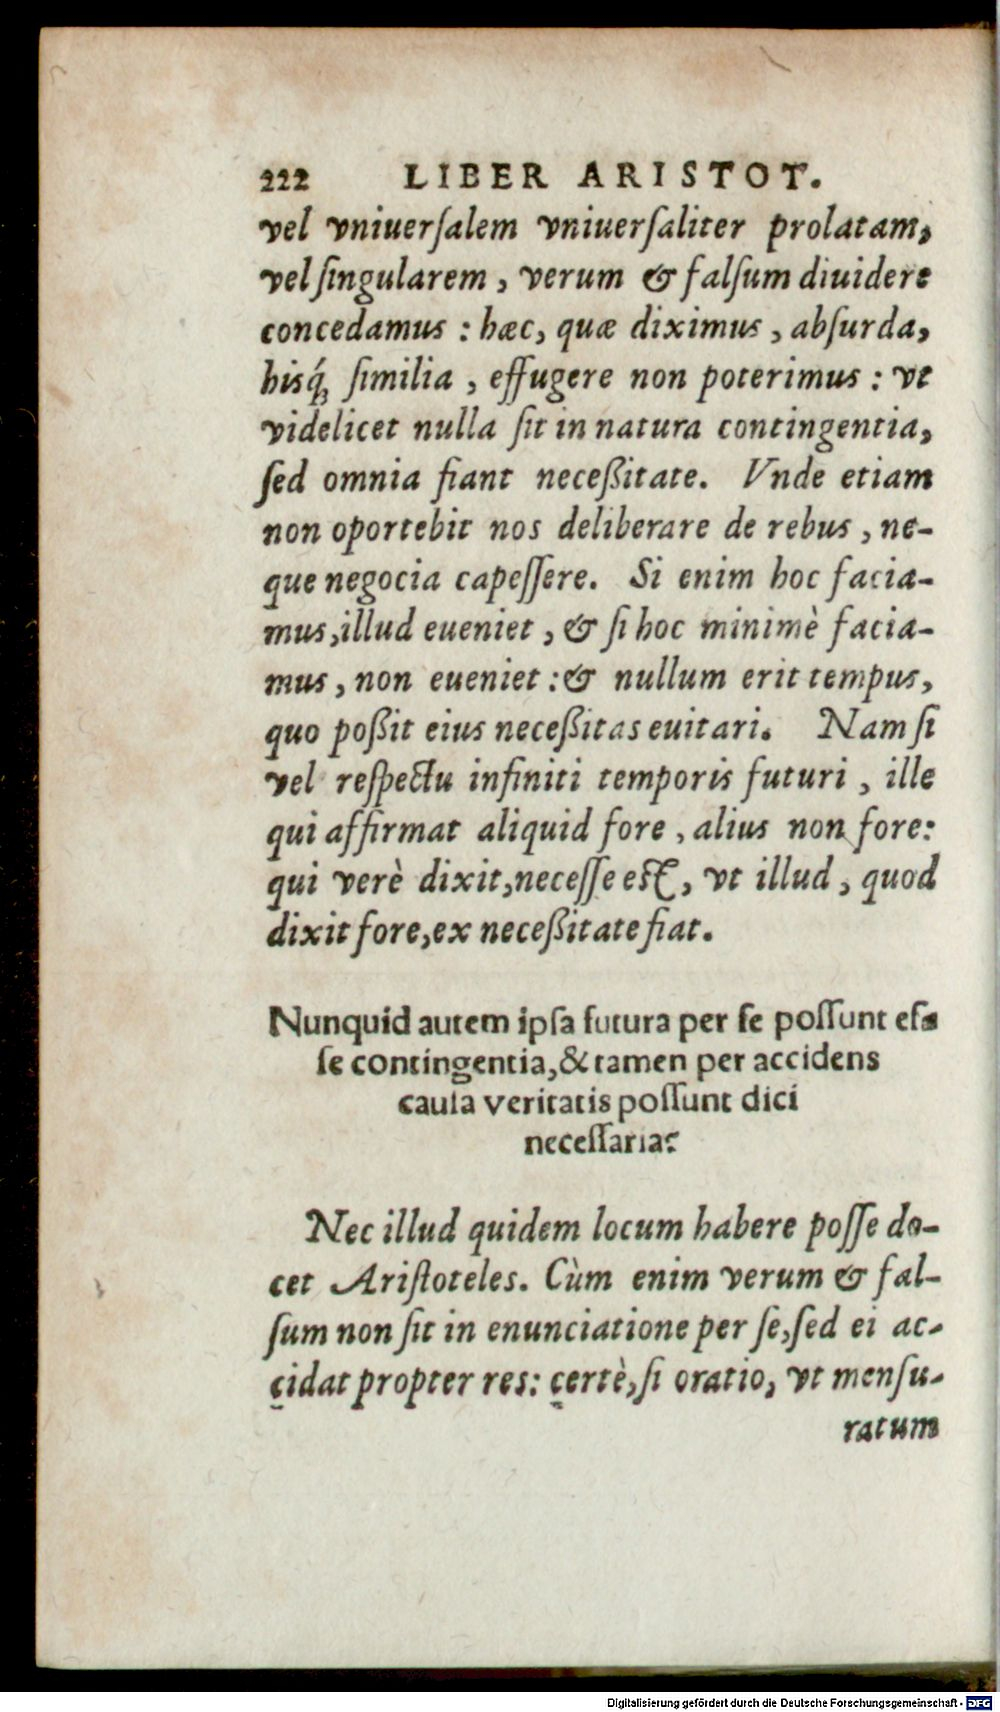 222 LIBER ARISTOT.
vel vniuerſalem vniuerſaliter prolatam,
vel ſingularem, verum & falſum diuidere
concedamus: hæc, quæ diximus, abſurda,
hisq́; ſimilia, effugere non poterimus: vt
videlicet nulla ſit in natura contingentia,
ſed omnia fiant neceßitate. Vnde etiam
non oportebit nos deliberare de rebus, ne-
que negocia capeſſere. Si enim hoc facia-
mus, illud eueniet, & ſi hoc minimè facia-
mus, non eueniet: & nullum erit tempus,
quo poßit eius neceßitas euitari. Nam ſi
vel reſpectu infiniti temporis futuri, ille
qui affirmat aliquid fore, alius non fore:
qui verè dixit, neceſſe est, vt illud, quod
dixit fore, ex neceßitate fiat.
Nunquid autem ipſa futura per ſe poſſunt eſ-
ſe contingentia, & tamen per accidens
cauſa veritatis poſſunt dici
neceſſaria?
Nec illud quidem locum habere poſſe do-
cet Ariſtoteles. Cùm enim verum & fal-
ſum non ſit in enunciatione per ſe, ſed ei ac-
cidat propter res: certè, ſi oratio, vt menſu-
ratum
Digitalisierung gefördert durch die Deutsche Forschungsgemeinschaft - DFG